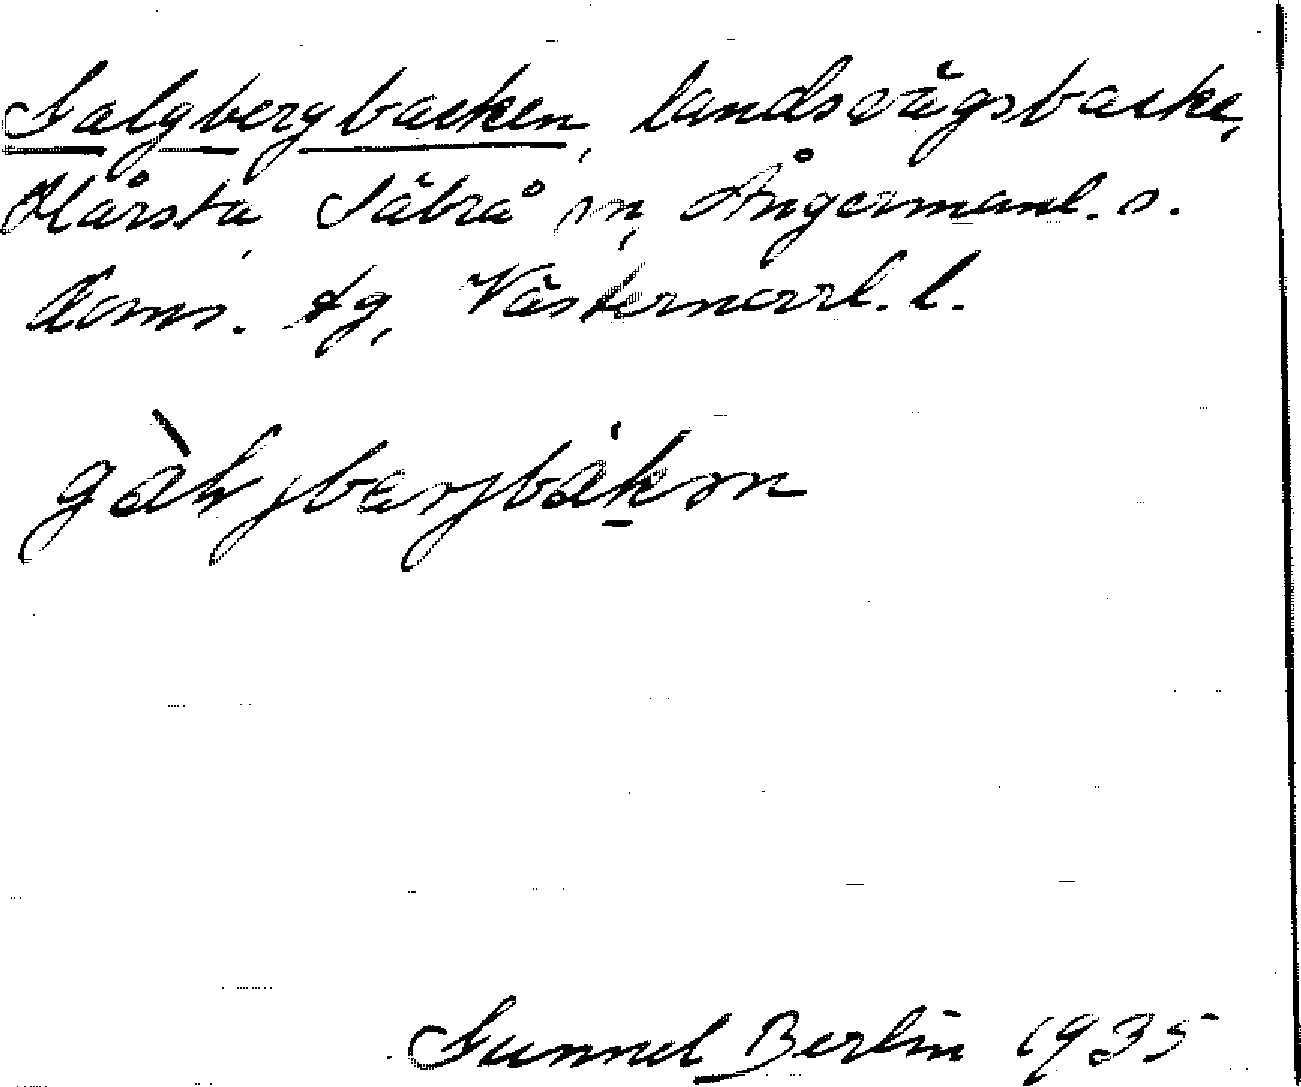 Galgbergbacken, landsvägsbacke,
Hårsta, Säbrå sn, Ångermanl. s.
doms. tg, Västernorrl. l.
gàlvjbærjbákən
Gunnel Berlin 1935